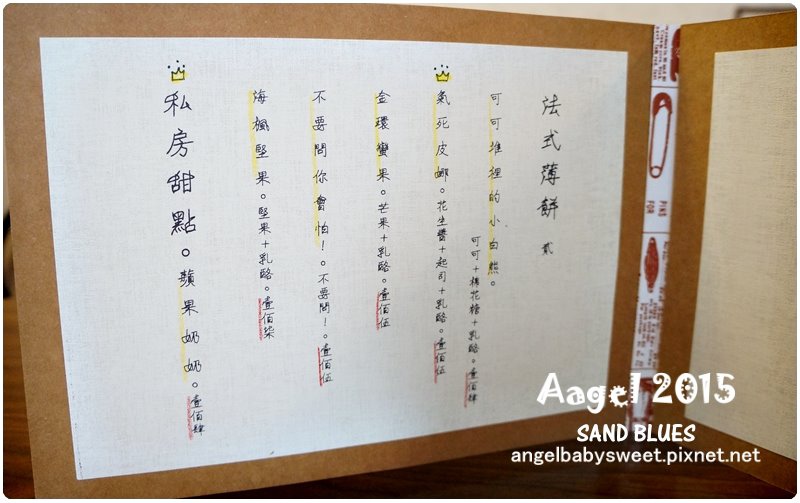 法式薄餅 貳
可可堆裡的小白熊。
可可+棉花糖+乳酪。壹佰肆
氣死皮娜。花生醬+起司+乳酪。壹佰伍
金環蜜果。芒果+乳酪。壹佰伍
不要問你會怕!。不要問!。壹佰伍
海楓堅果。堅果+乳酪。壹佰柒
私房甜點。蘋果奶奶。壹佰肆
PINS
FOR
Aagel 2015
SAND BLUES
angelbabysweet.pixnet.net